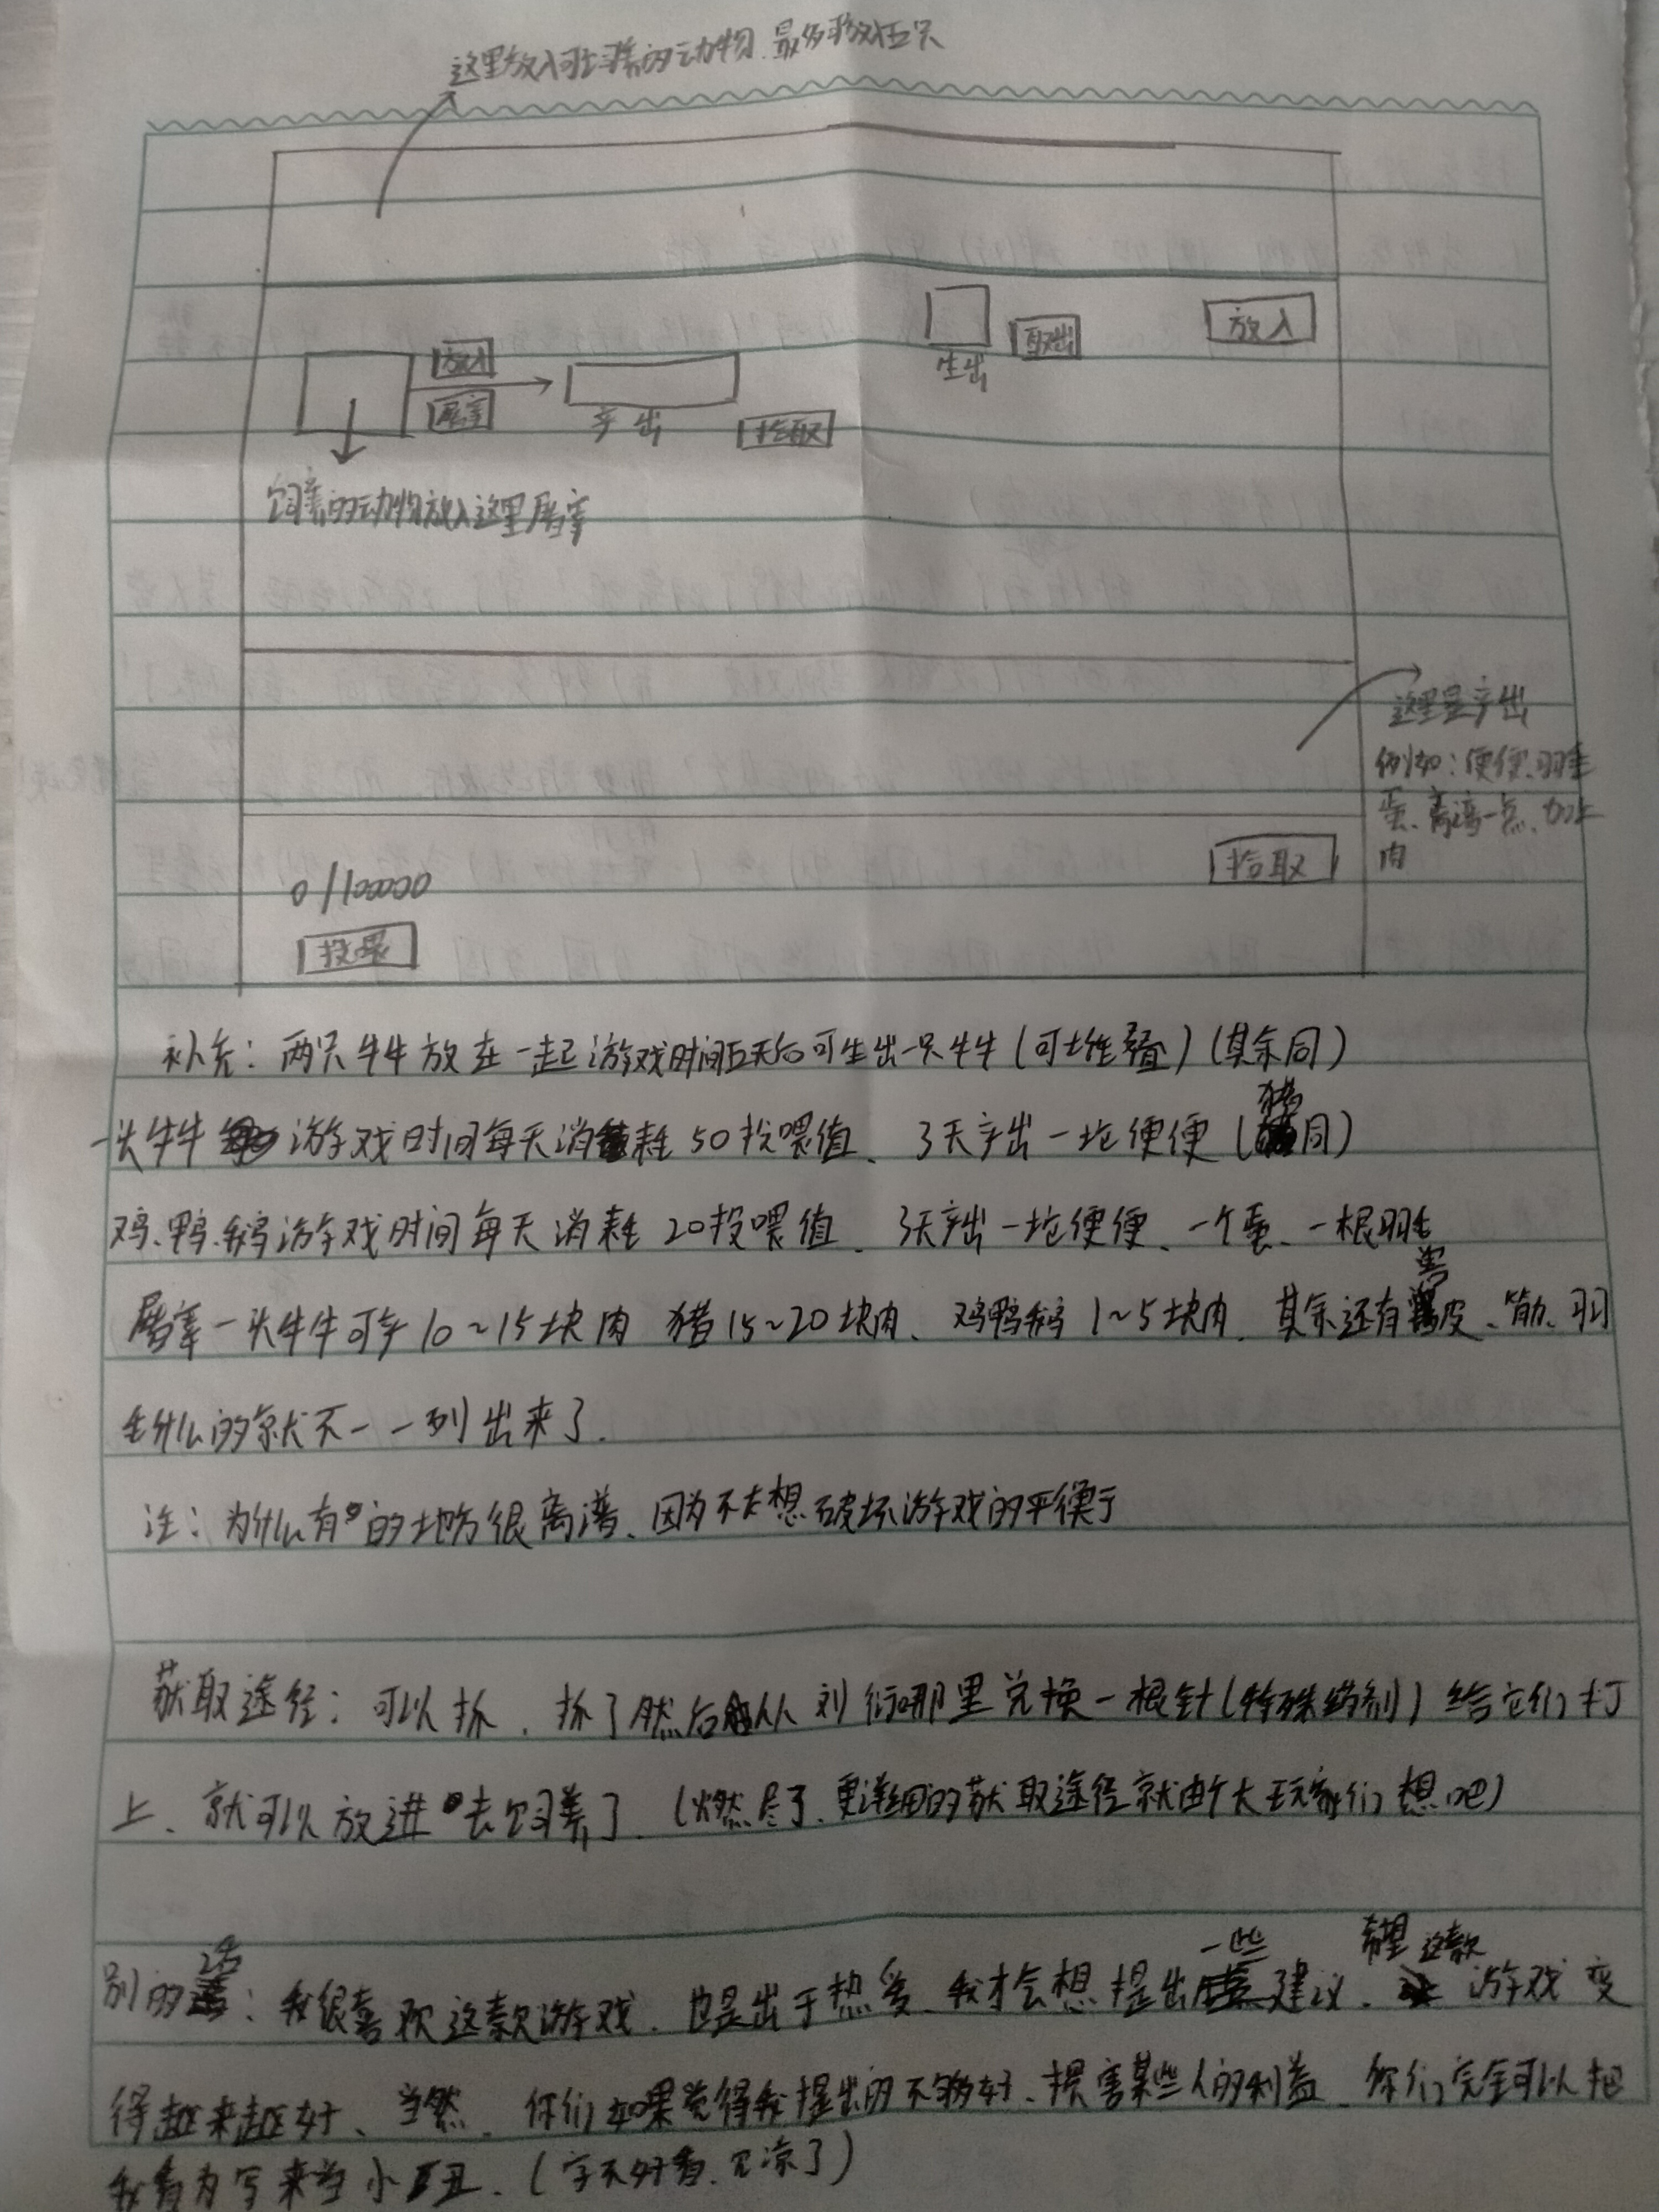 这里放入可饲养的动物.最多可放五只
放入
取出
生出
放入
屠宰
产出
拾取
饲养的动物放入这里屠宰
这里是产出
例如:便便、羽毛
蛋、离谱一点、加上
肉
拾取
0/100000
投喂
补充:两只牛牛放在一起游戏时间五天后可生出一只牛牛(可叠)(其余同)
一头牛牛游戏时间每天消耗50投喂值、3天产出一坨便便(猪同)
鸡、鸭、鹅游戏时间每天消耗20投喂值、3天产出一坨便便、一个蛋、一根羽毛
屠宰一头牛牛可产10~15块肉 猪15~20块肉、鸡鸭鹅1~5块肉、其余还有皮、筋、羽
毛什么的就不一一列出来了.
注:为什么有的地方很离谱、因为不太想破坏游戏的平衡
获取途径:可以抓、抓了然后从刘那里兑换一根针(特殊药剂)给它们打
上、就可以放进去饲养了.(燃尽了、更详细的获取途径就由广大玩家们想吧)
别的话:我很喜欢这款游戏.也是出于热爱、我才会想提出一些建议.希望这款游戏变
得越来越好、当然、你们如果觉得我提出的不够好、损害某些人的利益、你们完全可以把
我看为写来当小丑.(字不好看、见谅了)